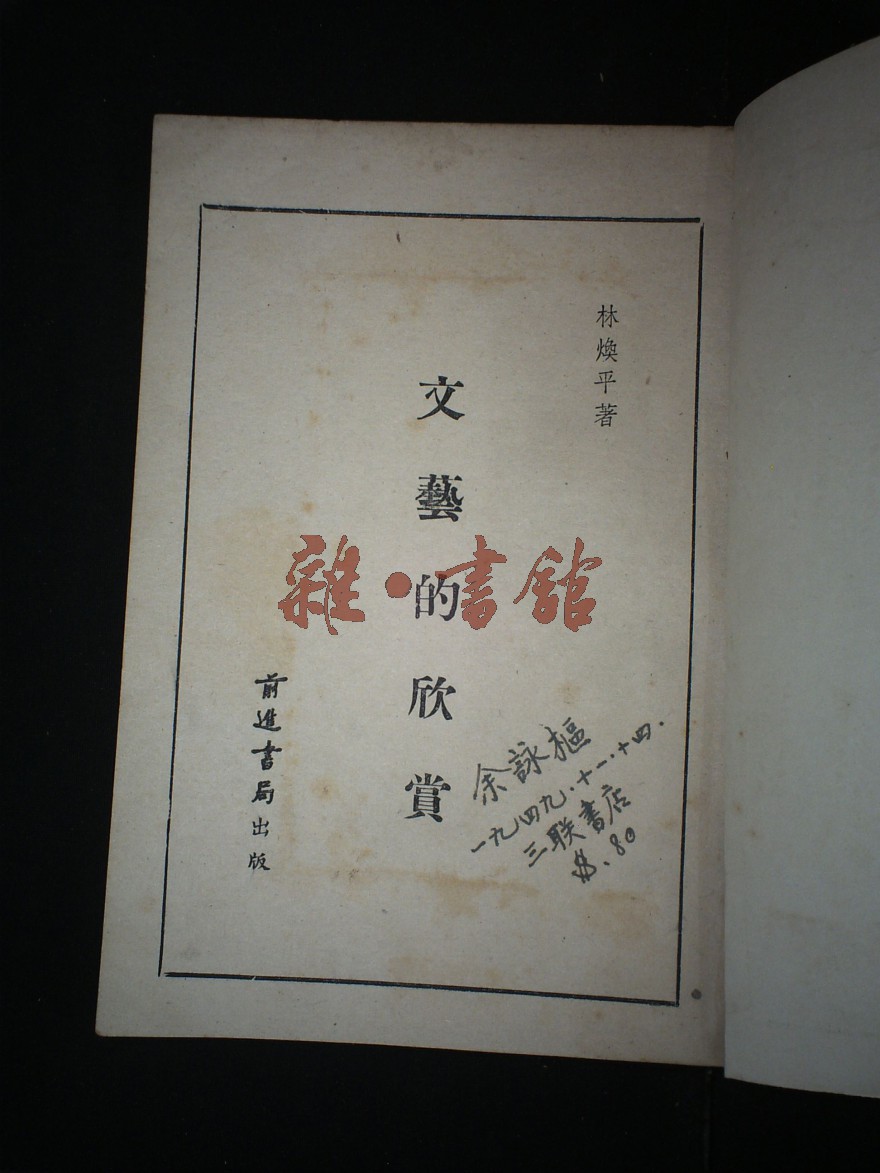 林煥平著
文藝的欣賞
前進書局出版
余詠樞
一九四九.十一.十四.
三联書店
$.80
雜·書館